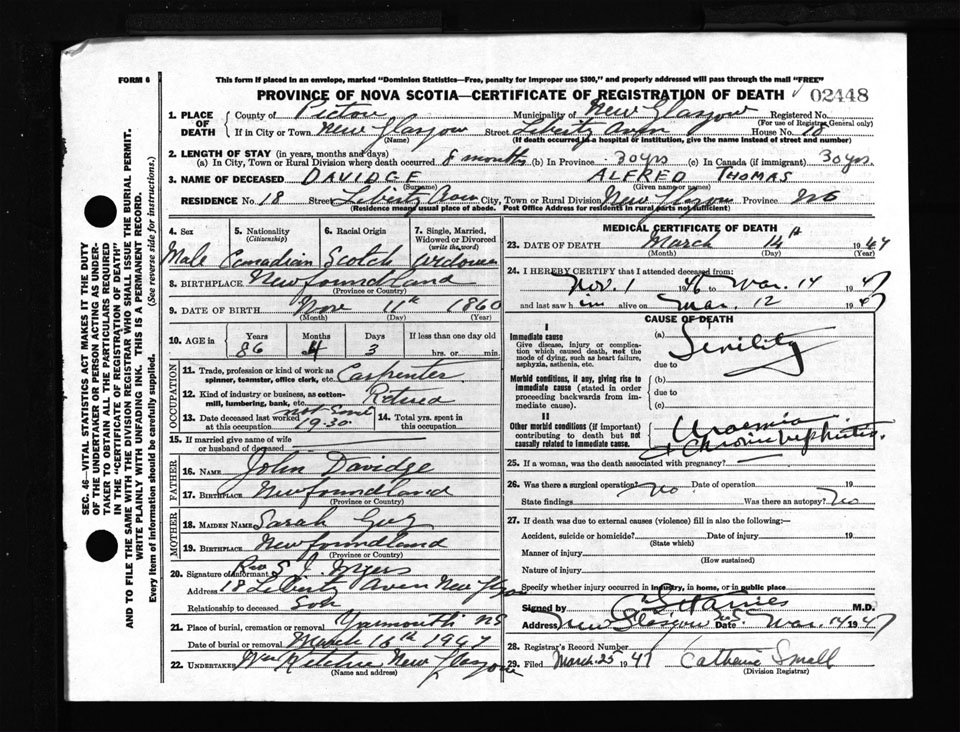 FORM 6
This form if placed in an envelope, marked "Dominion Statistics—Free, penalty for improper use $300," and properly addressed will pass through the mail "FREE"
PROVINCE OF NOVA SCOTIA—CERTIFICATE OF REGISTRATION OF DEATH 02448
1. PLACE OF DEATH County of Pictou Municipality of New Glasgow Registered No.
(For use of Registrar General only)
If in City or Town New Glasgow Street Liberty Aven House No. 18
(Name) (If death occurred in a hospital or institution, give its name instead of street and number)
2. LENGTH OF STAY (in years, months and days)
(a) In City, Town or Rural Division where death occurred 8 months (b) In Province 30 yrs (c) In Canada (if immigrant) 30 yrs.
3. NAME OF DECEASED DAVIDGE ALFRED THOMAS
(Surname) (Given name or names)
RESIDENCE No. 18 Street Liberty Aven City, Town or Rural Division New Glasgow Province NS
(Residence means usual place of abode. Post Office Address for residents in rural parts not sufficient)
4. Sex 5. Nationality (Citizenship) 6. Racial Origin 7. Single, Married, Widowed or Divorced (write the word)
Male Canadian Scotch Widower
8. BIRTHPLACE Newfoundland
(Province or Country)
9. DATE OF BIRTH Nov 11th 1860
(Month) (Day) (Year)
10. AGE in Years Months Days If less than one day old
86 4 3 hrs. or min.
OCCUPATION
11. Trade, profession or kind of work as spinner, teamster, office clerk, etc. Carpenter
12. Kind of industry or business, as cotton-mill, lumbering, bank, etc. Retired
13. Date deceased last worked at this occupation 1930 14. Total yrs. spent in this occupation
15. If married give name of wife or husband of deceased
FATHER
16. NAME John Davidge
17. BIRTHPLACE Newfoundland
(Province or Country)
MOTHER
18. MAIDEN NAME Sarah Guy
19. BIRTHPLACE Newfoundland
(Province or Country)
20. Signature of Informant Myers
Address 18 Liberty Aven New Glasgow
Relationship to deceased Son
21. Place of burial, cremation or removal Yarmouth NS
Date of burial or removal March 16th 1947
22. UNDERTAKER Wm Ritchie New Glasgow
(Name and address)
MEDICAL CERTIFICATE OF DEATH
23. DATE OF DEATH March 14th 1947
(Month) (Day) (Year)
24. I HEREBY CERTIFY that I attended deceased from:
Nov. 1 1946 to Mar. 14 1947
and last saw him alive on Mar. 12 1947
CAUSE OF DEATH
I
Immediate cause
Give disease, injury or complication which caused death, not the mode of dying, such as heart failure, asphyxia, asthenia, etc.
(a) Senility
due to
Morbid conditions, if any, giving rise to immediate cause (stated in order proceeding backwards from immediate cause).
(b)
due to
(c)
II
Other morbid conditions (if important) contributing to death but not causally related to immediate cause.
Uraemia
& Chronic nephritis.
25. If a woman, was the death associated with pregnancy?
26. Was there a surgical operation? No Date of operation 19
State findings Was there an autopsy? No
27. If death was due to external causes (violence) fill in also the following:—
Accident, suicide or homicide? Date of injury 19
(State which)
Manner of injury
(How sustained)
Nature of injury
Specify whether injury occurred in industry, in home, or in public place
Signed by M.D.
Address New Glasgow N.S. Date Mar. 14 1947
28. Registrar's Record Number
29. Filed March 25 1947 Catherine Small
(Division Registrar)
SEC. 46—VITAL STATISTICS ACT MAKES IT THE DUTY
OF THE UNDERTAKER OR PERSON ACTING AS UNDERTAKER TO OBTAIN ALL THE PARTICULARS REQUIRED
IN THE "CERTIFICATE OF REGISTRATION OF DEATH"
AND TO FILE THE SAME WITH THE DIVISION REGISTRAR WHO SHALL ISSUE THE BURIAL PERMIT.
WRITE PLAINLY WITH UNFADING INK. THIS IS A PERMANENT RECORD.
Every item of information should be carefully supplied. (See reverse side for instructions).